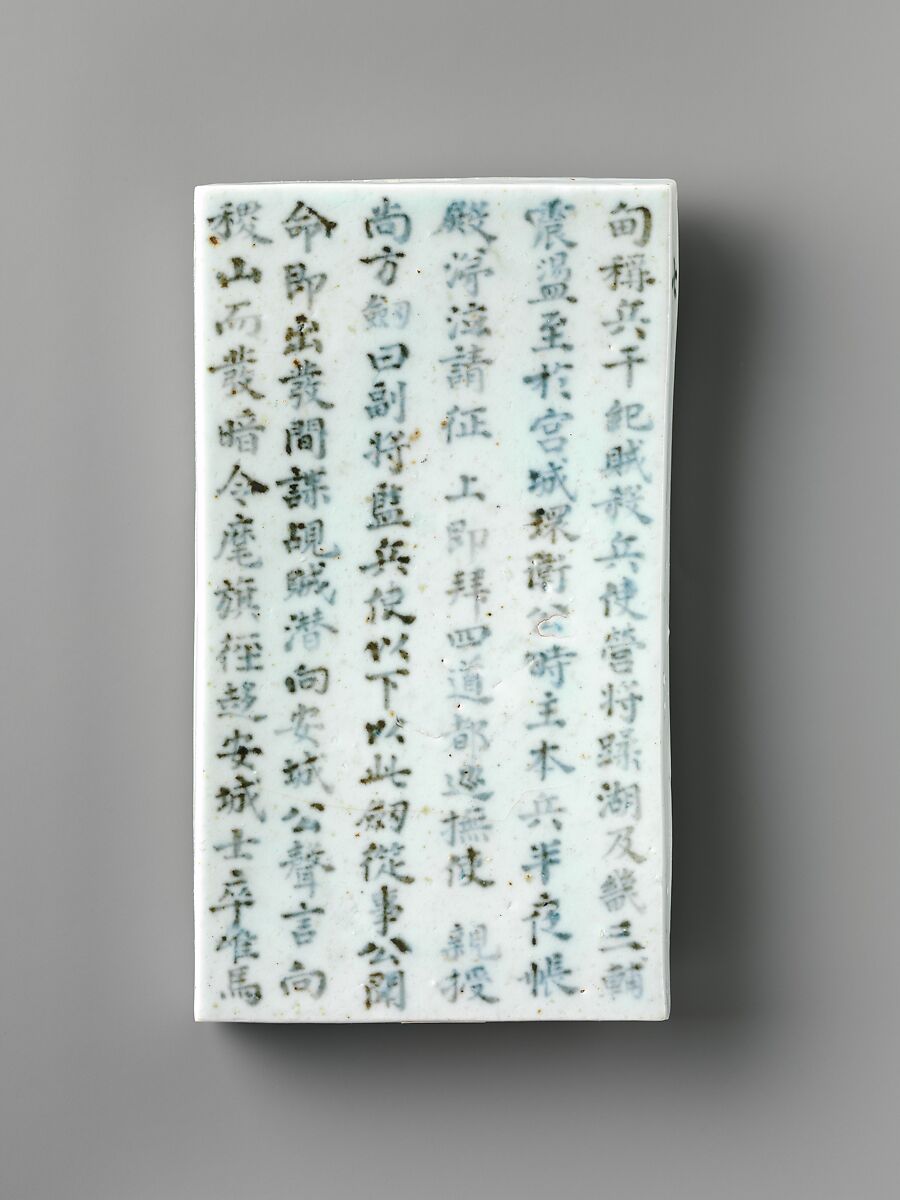 甸稱兵干紀賊殺兵使營將蹂湖及畿三輔
震盪至於宮城環衛公時主本兵半夜帳
殿涕泣請征　上即拜四道都巡撫使　親授
尚方劒曰副將監兵使以下以此劒從事公聞
命即出發間諜覘賊潛向安城公聲言向
稷山而發暗令麾旗徑趍安城士卒唯馬